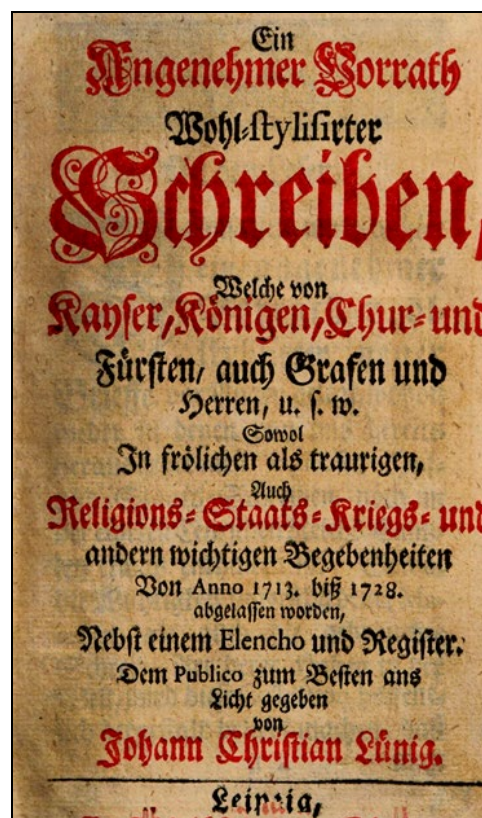 Ein
Angenehmer Vorrath
Wohl-stylisirter
Schreiben,
Welche von
Kayser, Königen, Chur- und
Fürsten, auch Grafen und
Herren, u. s. w.
Sowol
In frölichen als traurigen,
Auch
Religions- Staats- Kriegs- und
andern wichtigen Begebenheiten
Von Anno 1713. biß 1728.
abgelassen worden,
Nebst einem Elencho und Register.
Dem Publico zum Besten ans
Licht gegeben
von
Johann Christian Lünig.
Leipzig,